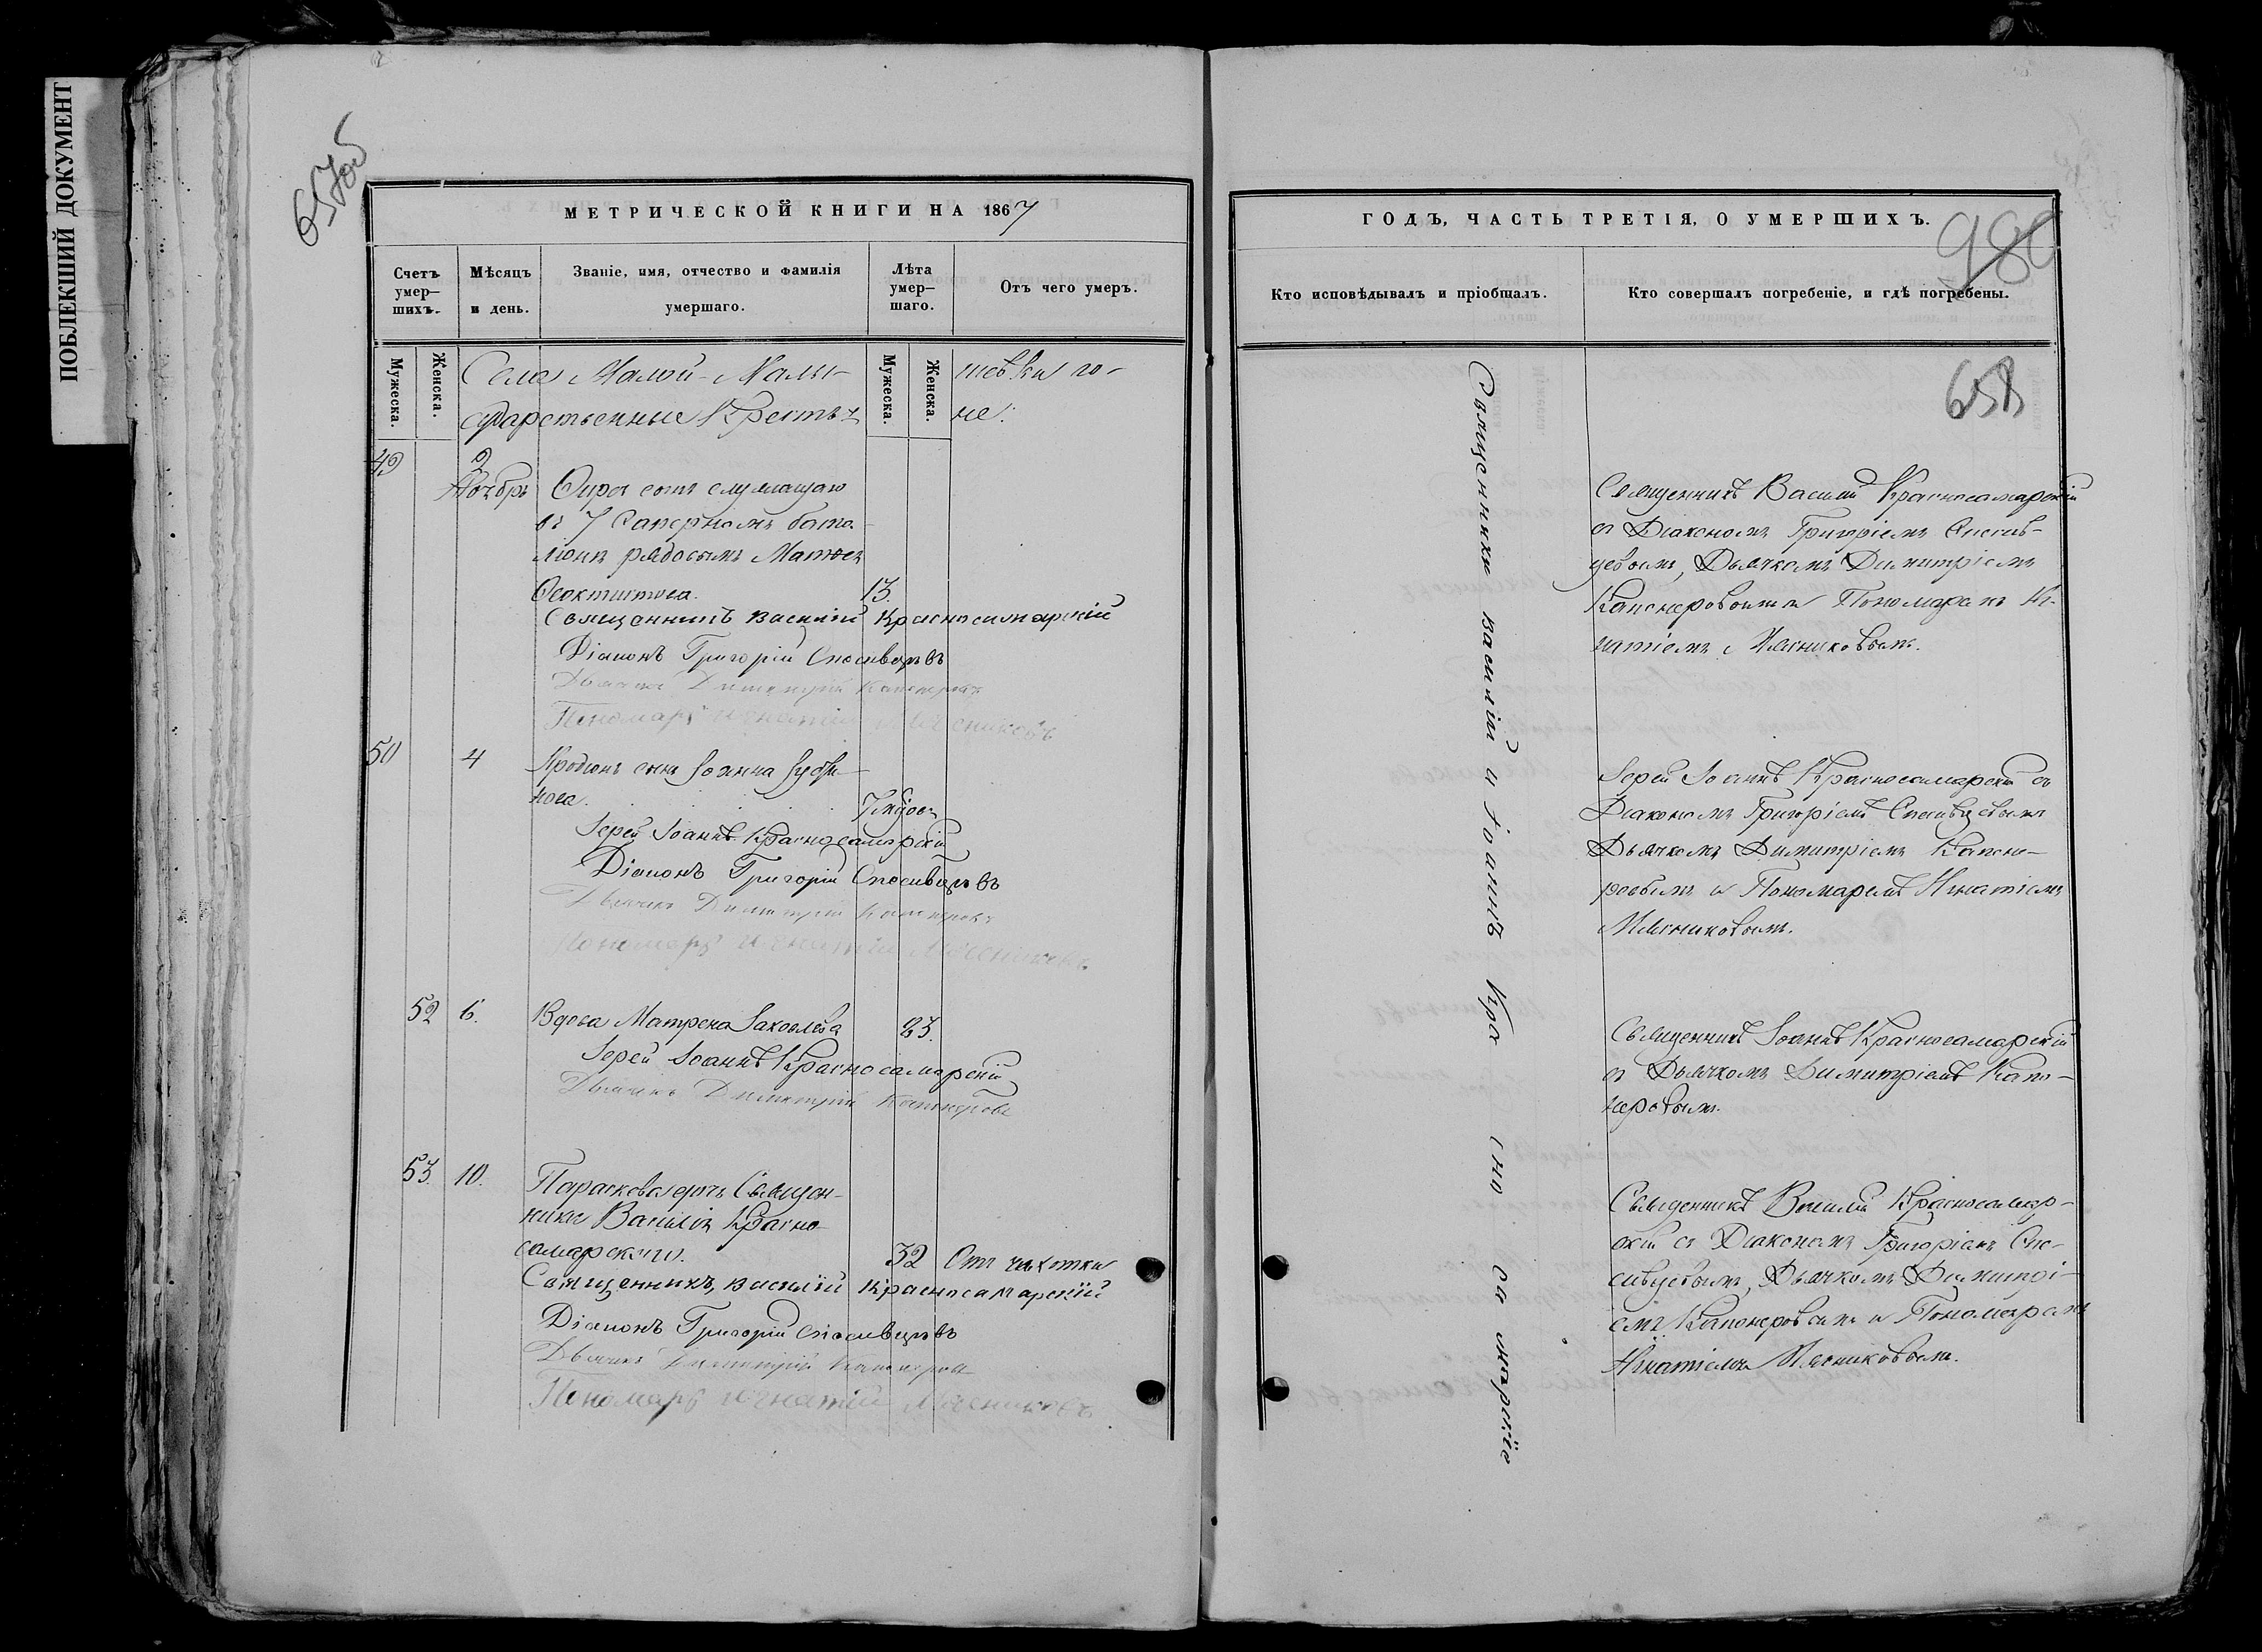 ПОБЛЕКШИЙ ДОКУМЕНТ
657об
МЕТРИЧЕСКОЙ КНИГИ НА 1867
Счетъ умер–шихъ.
Мѣсяцъ и день.
Званіе, имя, отчество и фамилія умершаго.
Лѣта умер–шаго.
Отъ чего умеръ.
Мужеска.
Женска.
Мужеска.
Женска.
Села Малой-Малы-шевки го-
сударственные Крестья-не:
49 2
Ноябрь
сынъ служащаго
въ 7 Саперномъ бата-
ліонѣ рядовымъ Матвея
Феоктистова. 13.
Священникъ Василий Красносамарскій
Діаконъ Григорій Спесивцевъ
Дьячекъ Димитрій Капонеровъ
Пономарь Игнатій Мясниковъ
50 4
Иродіонъ сынъ Іоанна
нова. 7
Іерей Іоаннъ Красносамарскій
Діаконъ Григорій Спесивцевъ
Дьячекъ Димитрій Капонеровъ
Пономарь Игнатій Мясниковъ
52 6.
Вдова Матрена Яковлева 83.
Іерей Іоаннъ Красносамарскій
Дьячекъ Димитрій Капонеровъ
53. 10.
Параскева дочь Священ-
ника Василія Красно-
самарскаго. 32 Отъ чахотки
Священникъ, василій Красносамарскій
Діаконъ Григорій Спесивцевъ
Дьячекъ Димитрій Капонеровъ
Пономарь Игнатій Мясниковъ
ГОДЪ, ЧАСТЬ ТРЕТІЯ, О УМЕРШИХЪ.
980
Кто исповѣдывалъ и пріобщалъ.
Кто совершалъ погребеніе, и гдѣ погребены.
658
Священники василій и іоаннъ Красносамарскіе
Священникъ Василій Красносамарскій
съ Діакономъ Григоріемъ Спесив-
цевымъ, Дьячкомъ Димитріемъ
Капонеровымъ и Пономаремъ Иг-
натіемъ Мясниковымъ.
Іерей Іоаннъ Красносамарскій съ
Діакономъ Григоріемъ Спесивцевымъ
Дьячкомъ Димитріемъ Капоне-
ровымъ и Пономаремъ Игнатіемъ
Мясниковымъ.
Священникъ Іоаннъ Красносамарскій
съ Дьячкомъ Димитріемъ Капо-
неровымъ.
Священникъ Василій Красносамар-
скій съ Діакономъ Григоріемъ Спе-
сивцевымъ, Дьячкомъ Димитрі-
емъ Капонеровымъ и Пономаремъ
Игнатіемъ Мясниковымъ.